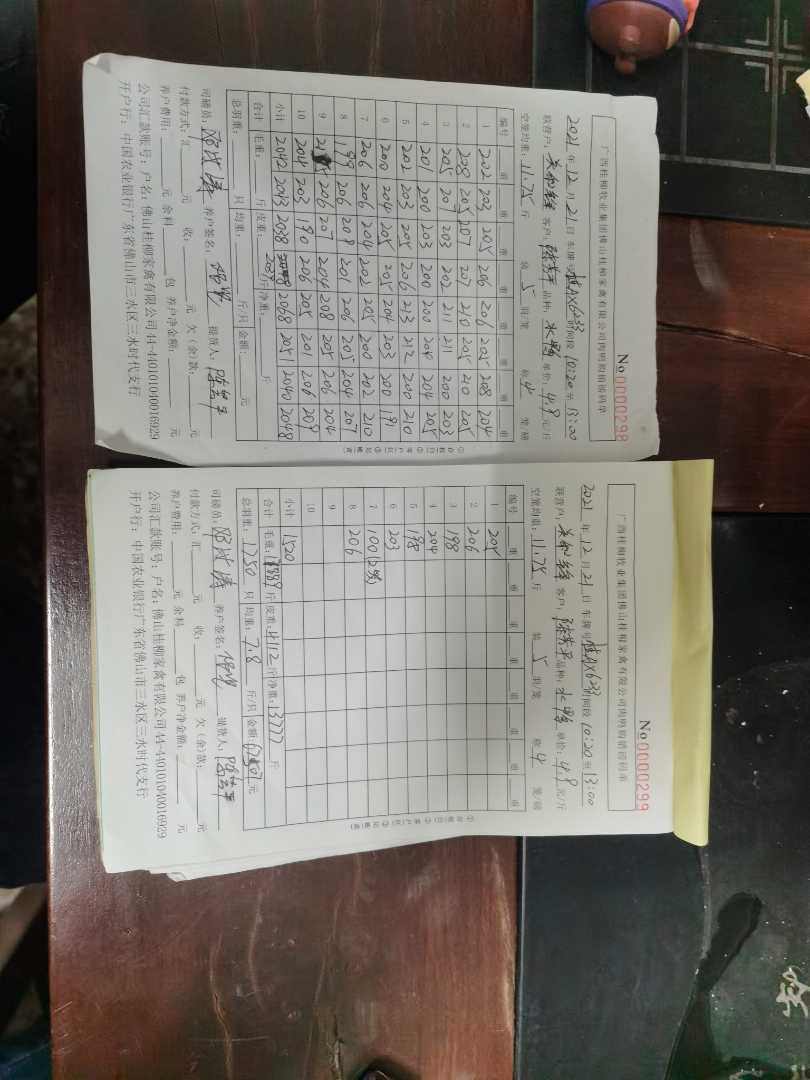 广西桂柳牧业集团佛山桂柳家禽有限公司肉鸭购销磅码单
No 0000298
2021 年 12 月 21 日 车牌号 桂AX6233 时间段 10:20 至 13:00
联营户: 客户: 陈芳平 品种: 水鸭 单价: 4.8 元/斤
空笼均重: 11.75 斤 装 5 羽/笼 称 4 笼/磅
编号 重 重 重 重 重 重 重 重
1 202 203 205 206 206 202 208 204
2 208 205 207 207 210 205 210 205
3 205 201 203 202 211 211 200 203
4 201 200 203 200 200 204 204 205
5 202 203 205 206 213 212 200 210
6 200 204 205 205 204 203 200 191
7 206 206 204 202 205 200 202 210
8 199 206 208 201 206 205 204 207
9 206 207 204 208 205 206 204
10 204 203 190 206 205 201 206 209
小计 2042 2043 2038 2037 2068 2051 2040 2048
合计 毛重: 斤 皮重: 斤 净重: 斤
总羽重: 只 均重: 斤/只 金额: 元
司磅员: 养户签名: 提货人: 陈芳平
付款方式: 汇 元 收: 元 欠(余)款: 元
养户费用: 元 余料 包 养户净金额: 元
公司汇款账号: 户名: 佛山桂柳家禽有限公司 44-440101040016929
开户行: 中国农业银行广东省佛山市三水区三水时代支行
广西桂柳牧业集团佛山桂柳家禽有限公司肉鸭购销磅码单
No 0000299
2021 年 12 月 21 日 车牌号 桂AX6233 时间段 10:20 至 13:00
联营户: 客户: 陈芳平 品种: 水鸭 单价: 4.8 元/斤
空笼均重: 11.75 斤 装 5 羽/笼 称 4 笼/磅
编号 重 重 重 重 重 重 重 重
1 205
2 206
3 198
4 204
5 198
6 203
7 100(2笼)
8 206
9
10
小计 1520
合计 毛重: 斤 皮重: 4112 斤 净重: 13777 斤
总羽重: 1750 只 均重: 7.8 斤/只 金额: 元
司磅员: 养户签名: 提货人: 陈芳平
付款方式: 汇 元 收: 元 欠(余)款: 元
养户费用: 元 余料 包 养户净金额: 元
公司汇款账号: 户名: 佛山桂柳家禽有限公司 44-440101040016929
开户行: 中国农业银行广东省佛山市三水区三水时代支行